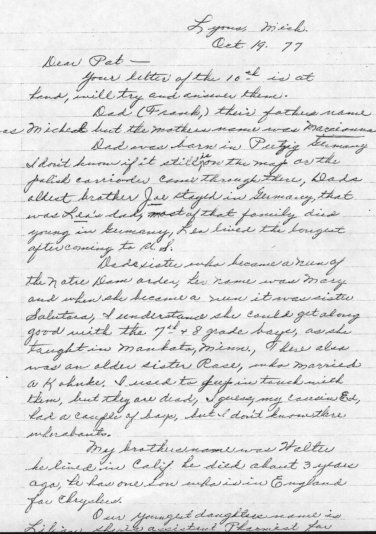 Lyons, Mich.
Oct 19. 77
Dear Pat —
Your letter of the 10th is at
hand, will try and answer them.
Dad (Frank,) their fathers name
as Micheal but the mothers name was
Dad was born in Putzig Germany
I don't know if it still is on the map or the
polish carrioder come through there, Dads
oldest brother Joe stayed in Germany, that
was Lea's dad, most of that family died
young in Germany, Lea lived the longest
after coming to U.S.
Dads sister who became a nun of
the Notre Dam order, her name was Mary
and when she became a nun it was sister
Salutara, I understand she could get along
good with the 7th + 8 grade boys, as she
taught in Mankato, Minn, There also
was an older sister Rose, who married
a Kohnke. I used to keep in touch with
them, but they are dead, I guess, my cousin Ed,
had a couple of boys, but I don't know there
whereabouts.
My brothers name was Walter
he lived in Calif he died about 3 years
ago, he has one son who is in England
for Chrysler.
Our youngest daughters name is
Lilian, she's assistant Pharmist for